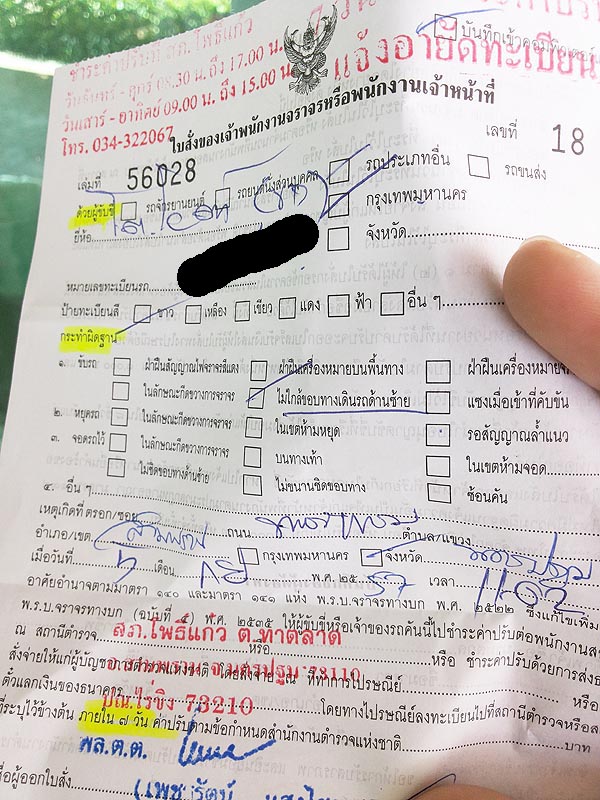 ชำระค่าปรับที่ สภ.โพธิ์แก้ว
วันจันทร์ - ศุกร์ 08.30 น. ถึง 17.00 น.
วันเสาร์ - อาทิตย์ 09.00 น. ถึง 15.00 น.
โทร. 034-322067
แจ้งอายัดทะเบียน
บันทึกเข้าคอมพิวเตอร์
ใบสั่งของเจ้าพนักงานจราจรหรือพนักงานเจ้าหน้าที่
เล่มที่ 56028 เลขที่ 18
ด้วยผู้ขับขี่ รถจักรยานยนต์ รถยนต์นั่งส่วนบุคคล รถประเภทอื่น รถขนส่ง
ยี่ห้อ กรุงเทพมหานคร
จังหวัด
หมายเลขทะเบียนรถ
ป้ายทะเบียนสี ขาว เหลือง เขียว แดง ฟ้า อื่น ๆ
กระทำผิดฐาน
๑. ขับรถ ฝ่าฝืนสัญญาณไฟจราจรสีแดง ฝ่าฝืนเครื่องหมายบนพื้นทาง ฝ่าฝืนเครื่องหมาย
ในลักษณะกีดขวางการจราจร ไม่ใกล้ขอบทางเดินรถด้านซ้าย แซงเมื่อเข้าที่คับขัน
๒. หยุดรถ ในลักษณะกีดขวางการจราจร ในเขตห้ามหยุด รอสัญญาณล้ำแนว
๓. จอดรถไว้ ในลักษณะกีดขวางการจราจร บนทางเท้า ในเขตห้ามจอด
ไม่ชิดขอบทางด้านซ้าย ไม่ขนานชิดขอบทาง ซ้อนคัน
๔. อื่น ๆ
เหตุเกิดที่ตรอก/ซอย ถนน ตำบล/แขวง
อำเภอ/เขต สามพราน กรุงเทพมหานคร จังหวัด นครปฐม
เมื่อวันที่ เดือน กย พ.ศ. ๒๕ 57 เวลา 11.02
อาศัยอำนาจตามมาตรา ๑๔๐ และมาตรา ๑๔๑ แห่ง พ.ร.บ.จราจรทางบก พ.ศ. ๒๕๒๒ ซึ่งแก้ไขเพิ่ม
พ.ร.บ.จราจรทางบก (ฉบับที่ ๔) พ.ศ. ๒๕๓๕ ให้ผู้ขับขี่หรือเจ้าของรถคันนี้ไปชำระค่าปรับต่อพนักงานส
ณ สถานีตำรวจ สภ.โพธิ์แก้ว ต.ท่าตลาด หรือ หรือ ชำระค่าปรับด้วยการส่ง
สั่งจ่ายให้แก่ผู้บัญชาการตำรวจแห่งชาติ โดยสั่งจ่าย ณ ที่ทำการไปรษณีย์ หรือ
อ.สามพราน จ.นครปฐม 73110
ตั๋วแลกเงินของธนาคาร ปณ.ไร่ขิง 73210 โดยทางไปรษณีย์ลงทะเบียนไปที่สถานีตำรวจหรือส
ที่ระบุไว้ข้างต้น ภายใน ๗ วัน ค่าปรับตามข้อกำหนดสำนักงานตำรวจแห่งชาติ บาท
พล.ต.ต.
ชื่อผู้ออกใบสั่ง